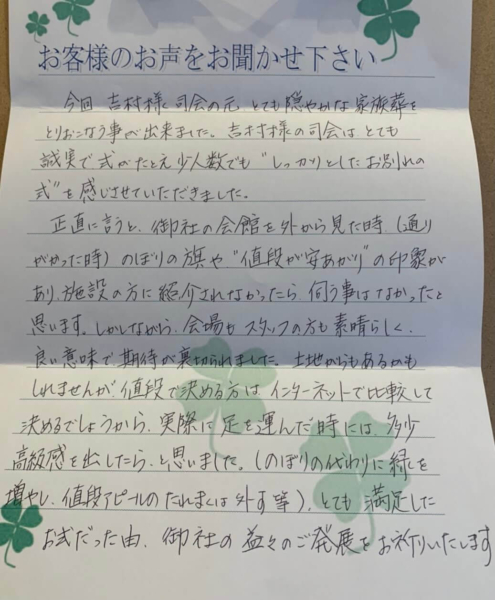 お客様のお声をお聞かせ下さい
今回 吉村様 司会の元、とても穏やかな家族葬を
とりおこなう事が出来ました。吉村様の司会はとても
誠実で式がたとえ少人数でも"しっかりとしたお別れの
式"を感じさせていただきました。
正直に言うと、御社の会館を外から見た時、(通り
がかった時)のぼりの旗や"値段が安あがり"の印象が
あり、施設の方に紹介されなかったら、伺う事はなかったと
思います。しかしながら、会場もスタッフの方も素晴らしく、
良い意味で期待が裏切られました。土地からもあるかも
しれませんが、値段で決める方は、インターネットで比較して
決めるでしょうから、実際に足を運んだ時には、多少
高級感を出したら、と思いました。(のぼりの代わりに緑を
増やし、値段アピールのたれまくは外す等)、とても満足した
お式だった由、御社の益々のご発展をお祈りいたします